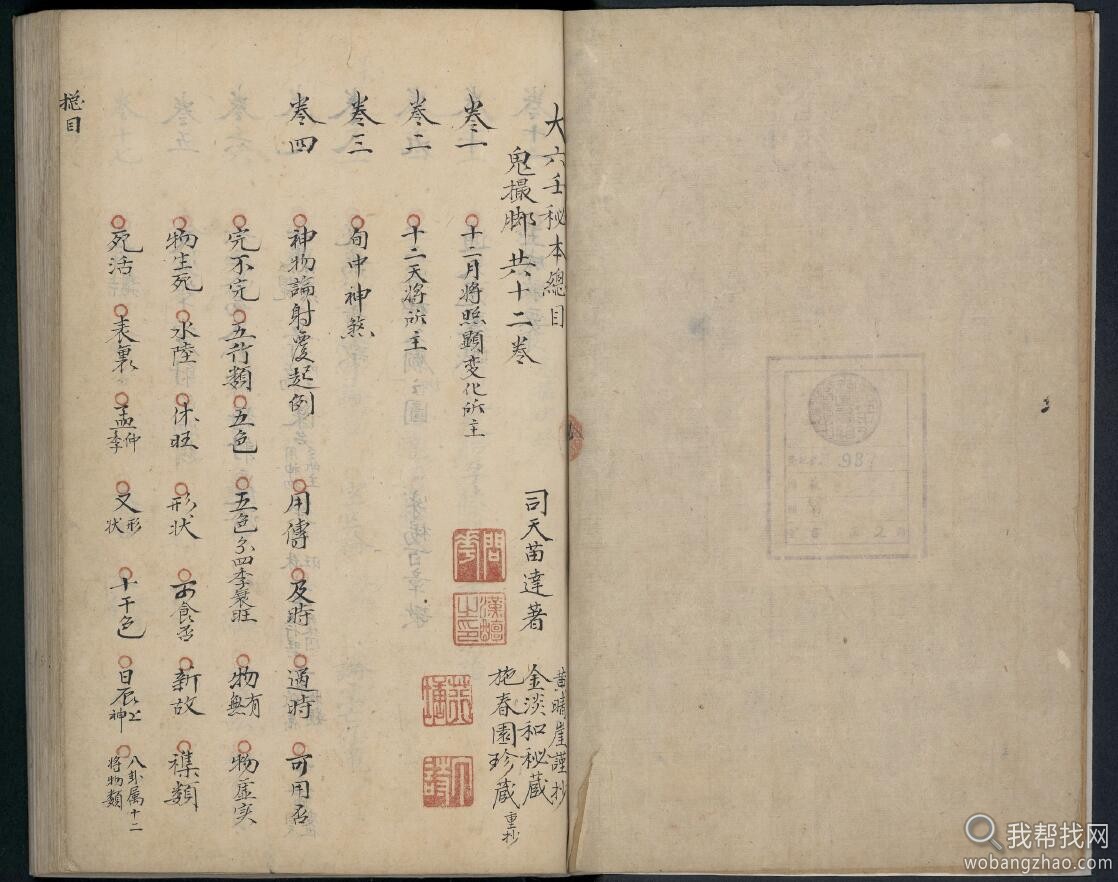 大六壬秘本總目
鬼撮脚 共十二卷
司天苗達著
黄晴崖謹抄
金淡和秘藏
施春園珍藏 重抄
卷一 十二月將照顯变化所主
卷二 十二天將所主
卷三 旬中神煞
卷四 神物論射覆起例 用傳 及時 適時 可用否
完不完 五行類 五色 五色分四季衰旺 物有無 物虚实
物生死 水陸 休旺 形状 可食否 新故 襍類
死活 表裏 孟仲季 又形状 十干色 日辰上神 八卦属十二將物類
总目
98
我帮找网
wobangzhao.com